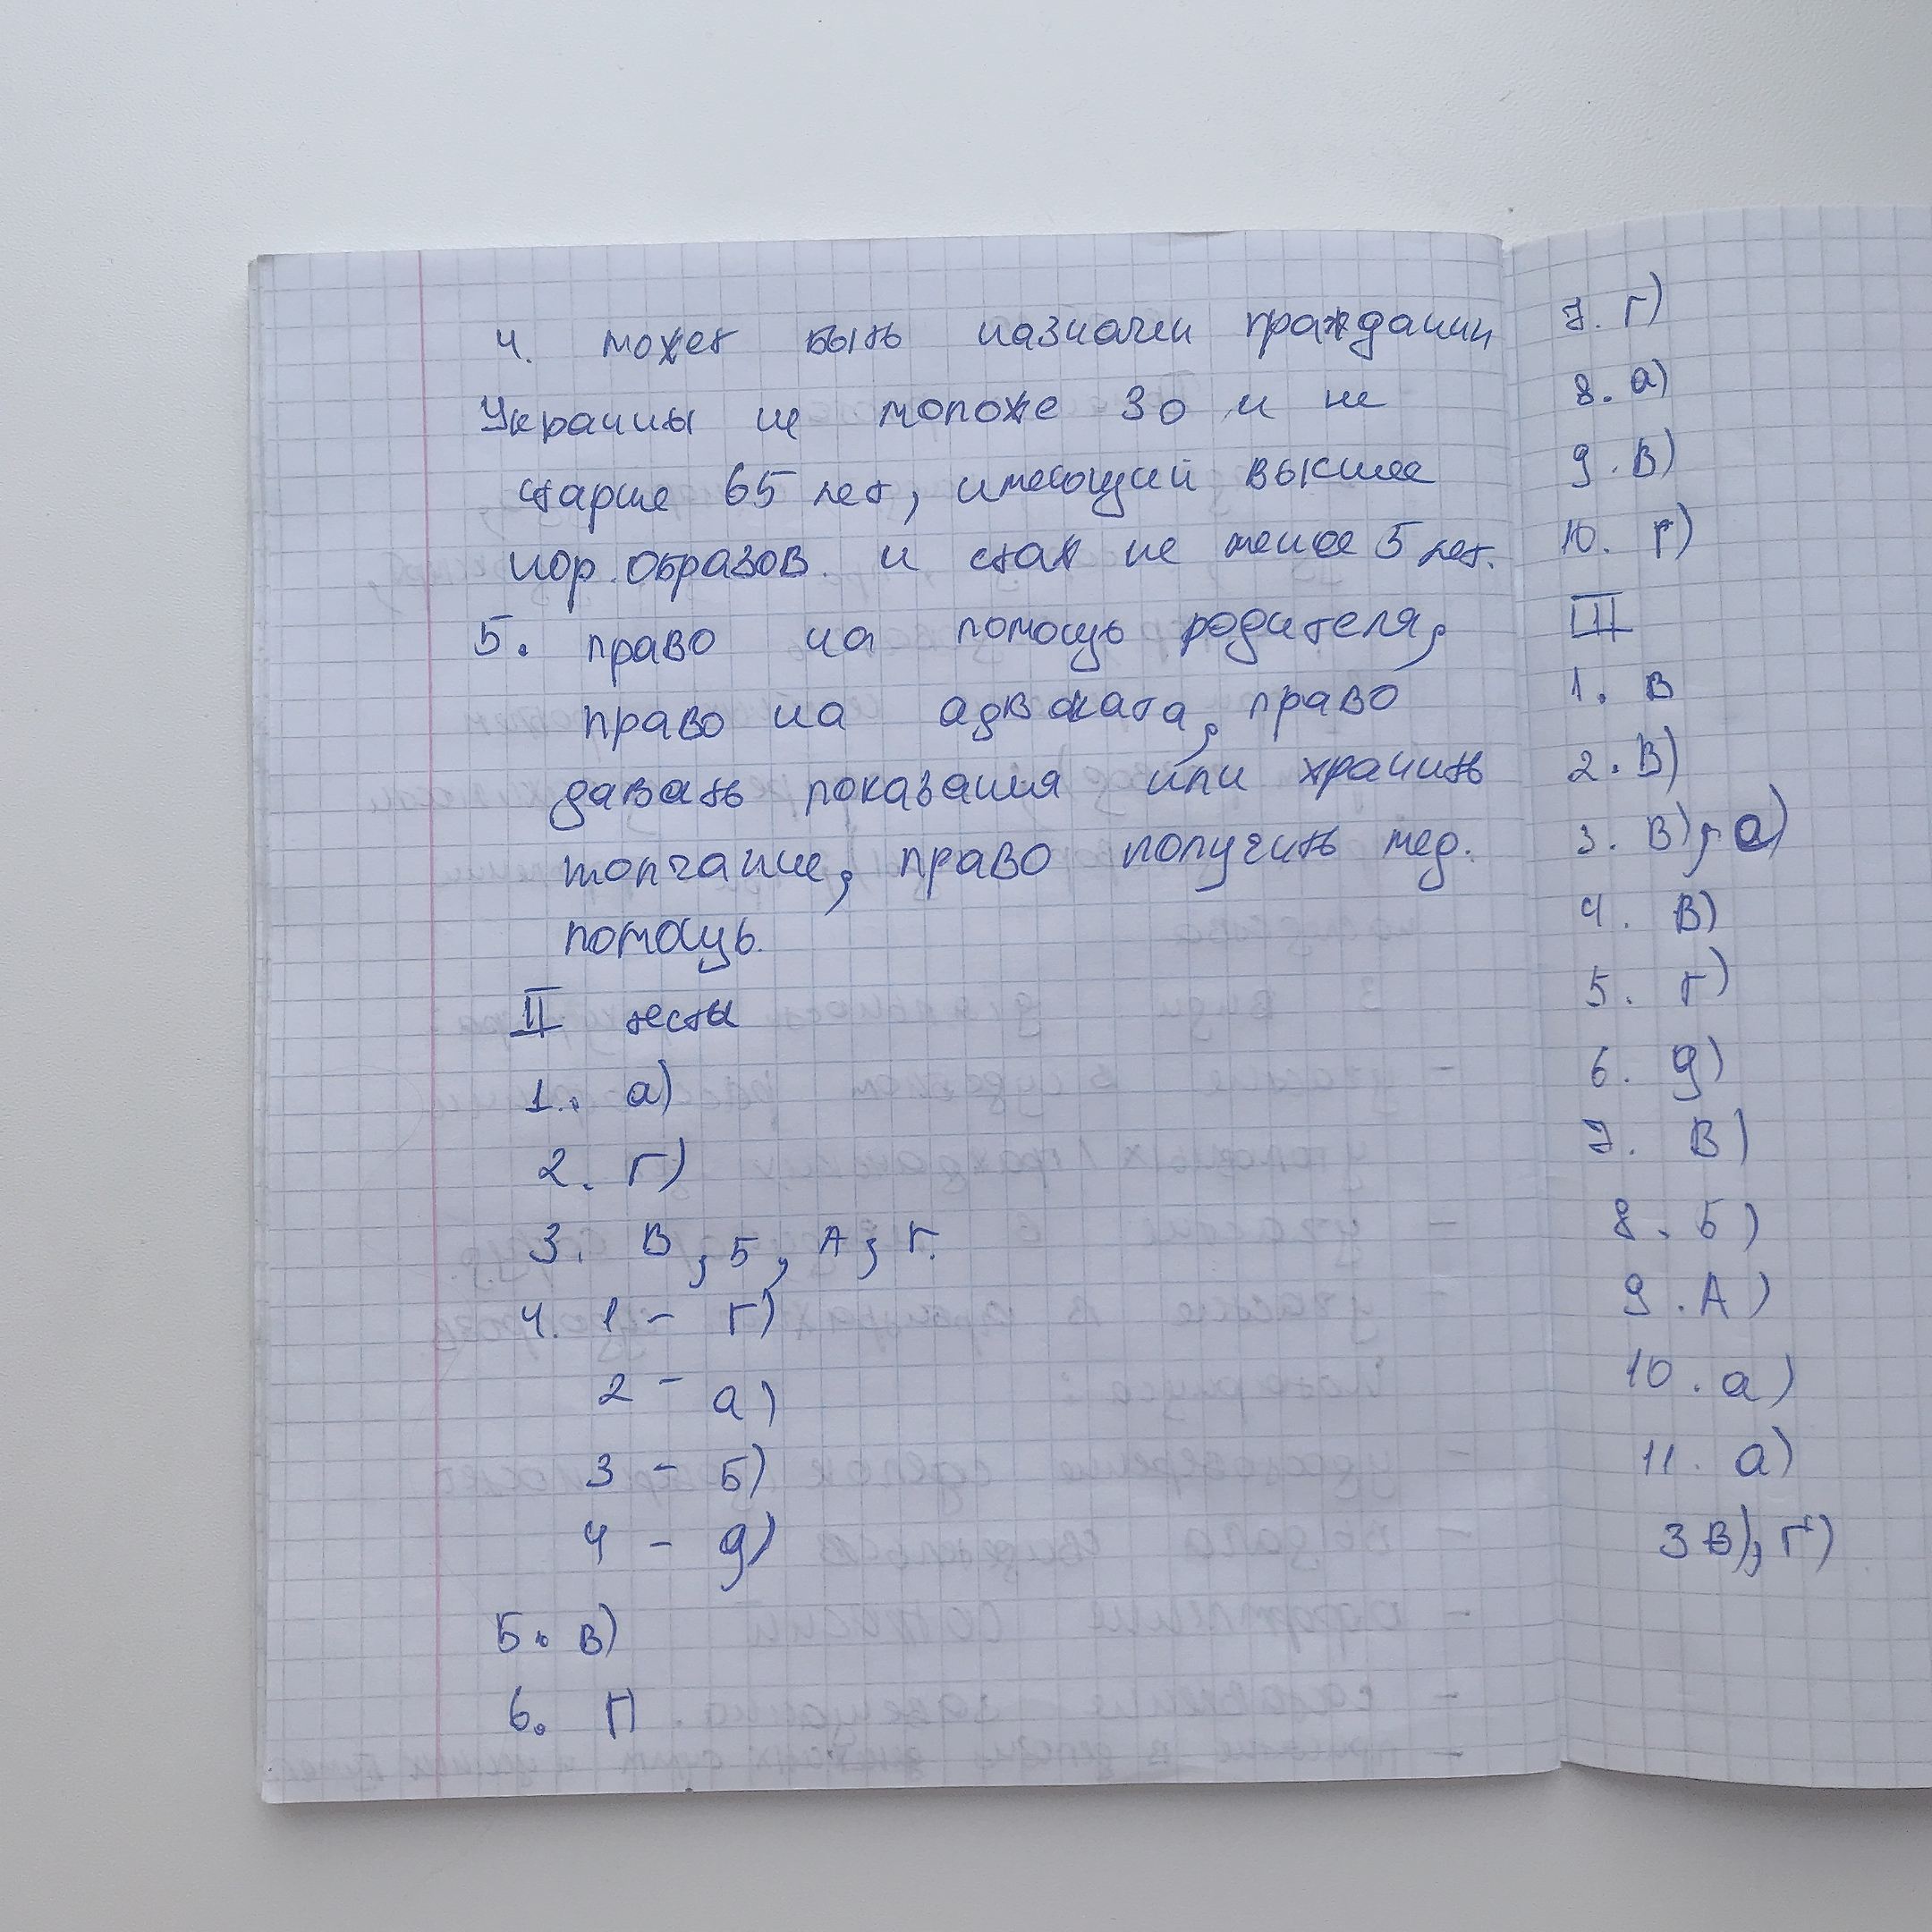 4. может быть назначен гражданин
Украины не моложе 30 и не
старше 65 лет, имеющий высшее
юр. образов. и стаж не менее 5 лет.
5. право на помощь родителя,
право на адвоката, право
давать показания или хранить
молчание, право получить мед.
помощь.
II тесты
1. а)
2. г)
3. В, Б, А, Г.
4. 1 - г)
2 - а)
3 - Б)
4 - д)
5. в)
6. Г)
7. Г)
8. а)
9. В)
10. г)
III
1. В
2. В)
3. В), а)
4. В)
5. г)
6. д)
7. В)
8. Б)
9. А)
10. а)
11. а)
3 В), Г)